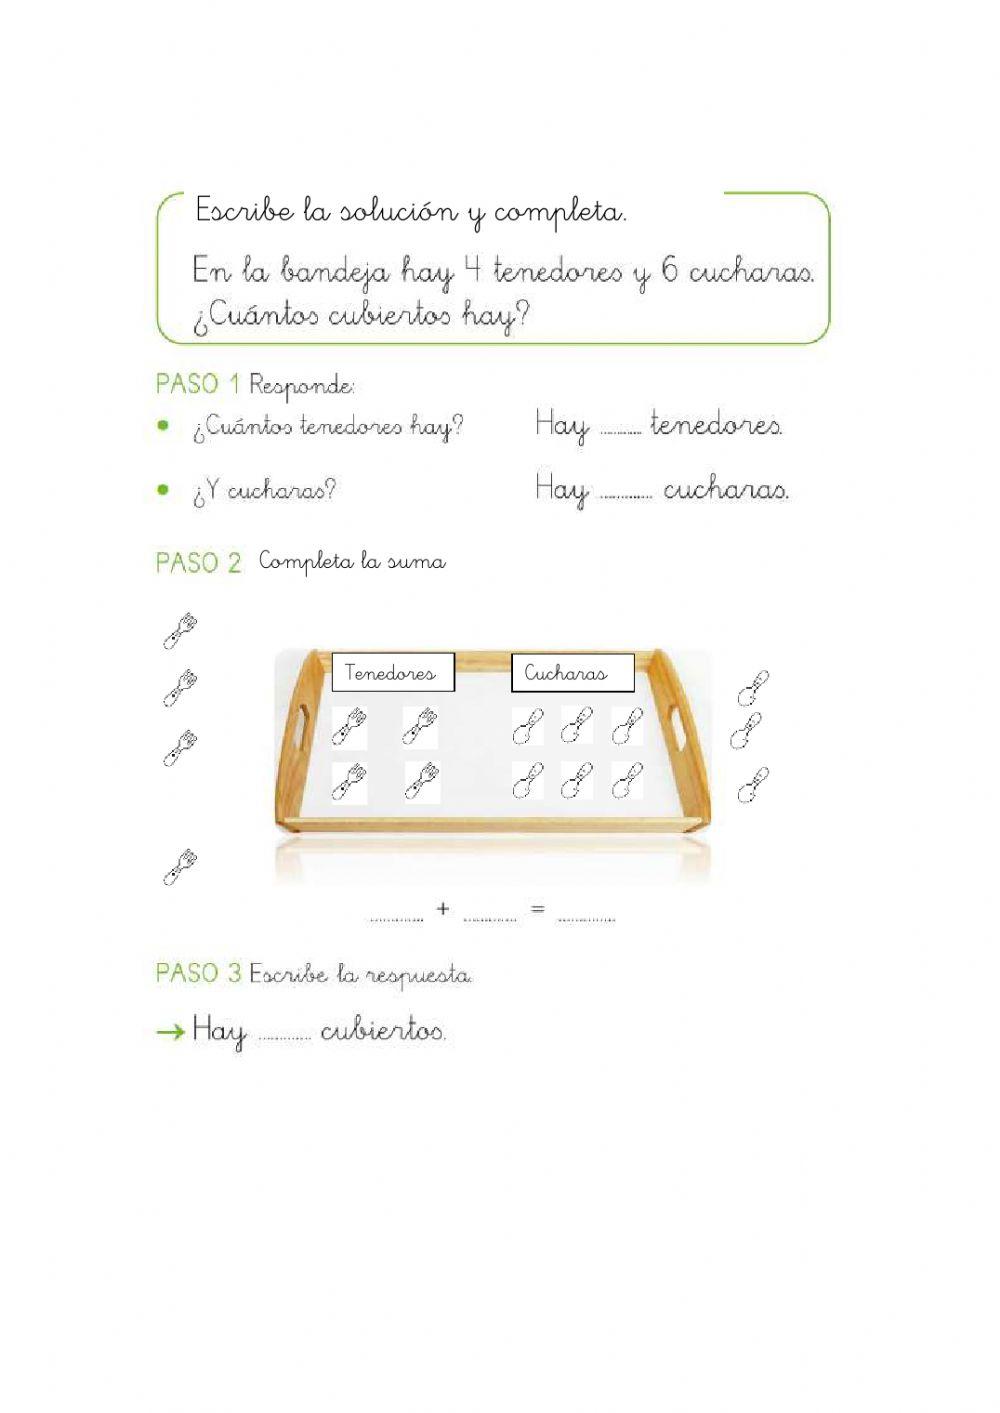 Escribe la solución y completa.
En la bandeja hay 4 tenedores y 6 cucharas.
¿Cuántos cubiertos hay?
PASO 1 Responde:
• ¿Cuántos tenedores hay? Hay ............ tenedores.
• ¿Y cucharas? Hay ............ cucharas.
PASO 2 Completa la suma
Tenedores Cucharas
............ + ............ = ............
PASO 3 Escribe la respuesta.
→ Hay ............ cubiertos.